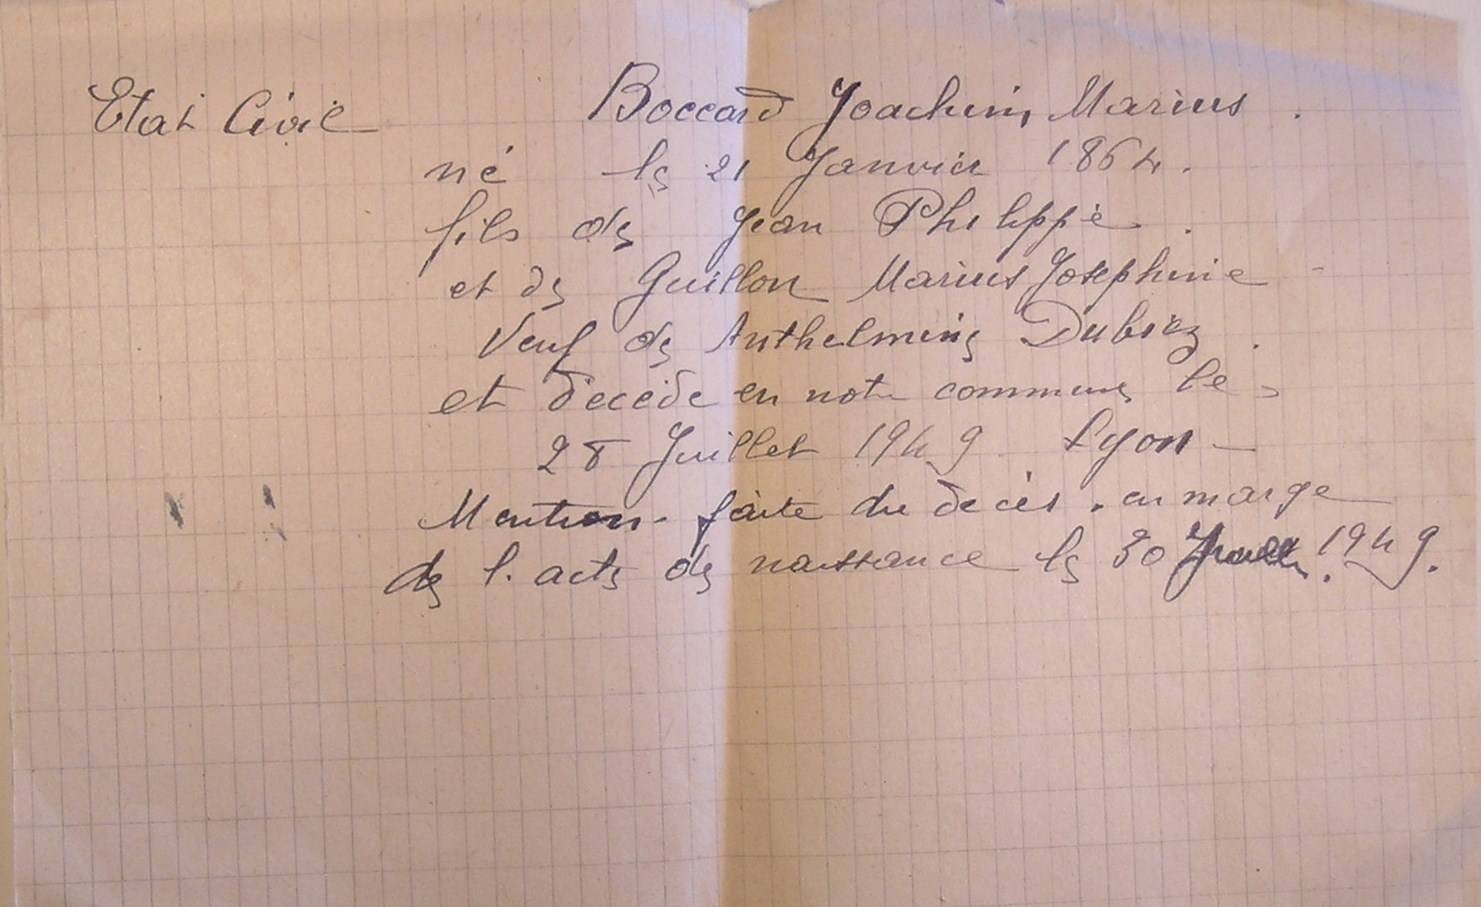 Etat Civil Boccard Joachim Marius .
né le 21 Janvier 1864.
fils de Jean Philippe .
et de Guillon Marius Josephine -
Veuf de Anthelmine .
et décédé en notre commune le
28 Juillet 1949 Lyon -
Mention - faite du decès . en marge
de l. acte de naissance le 30 . 1949.